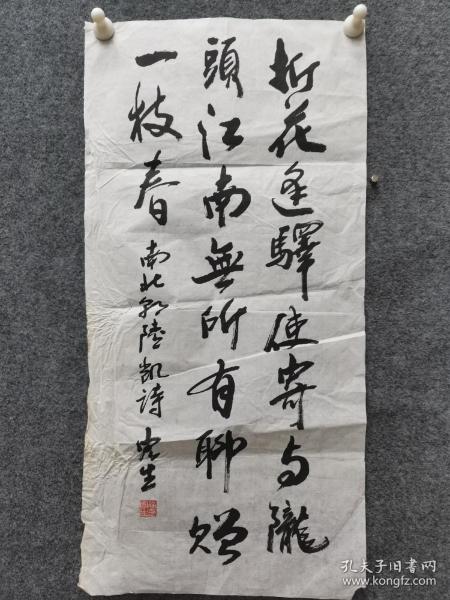 折花逢驛使寄与隴
頭江南無所有聊贈
一枝春
南北朝陸凯詩
孔夫子旧书网
www.kongfz.com